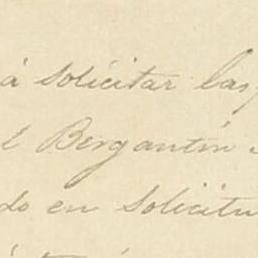 á solicitar las
l Bergantin
do en solicitu